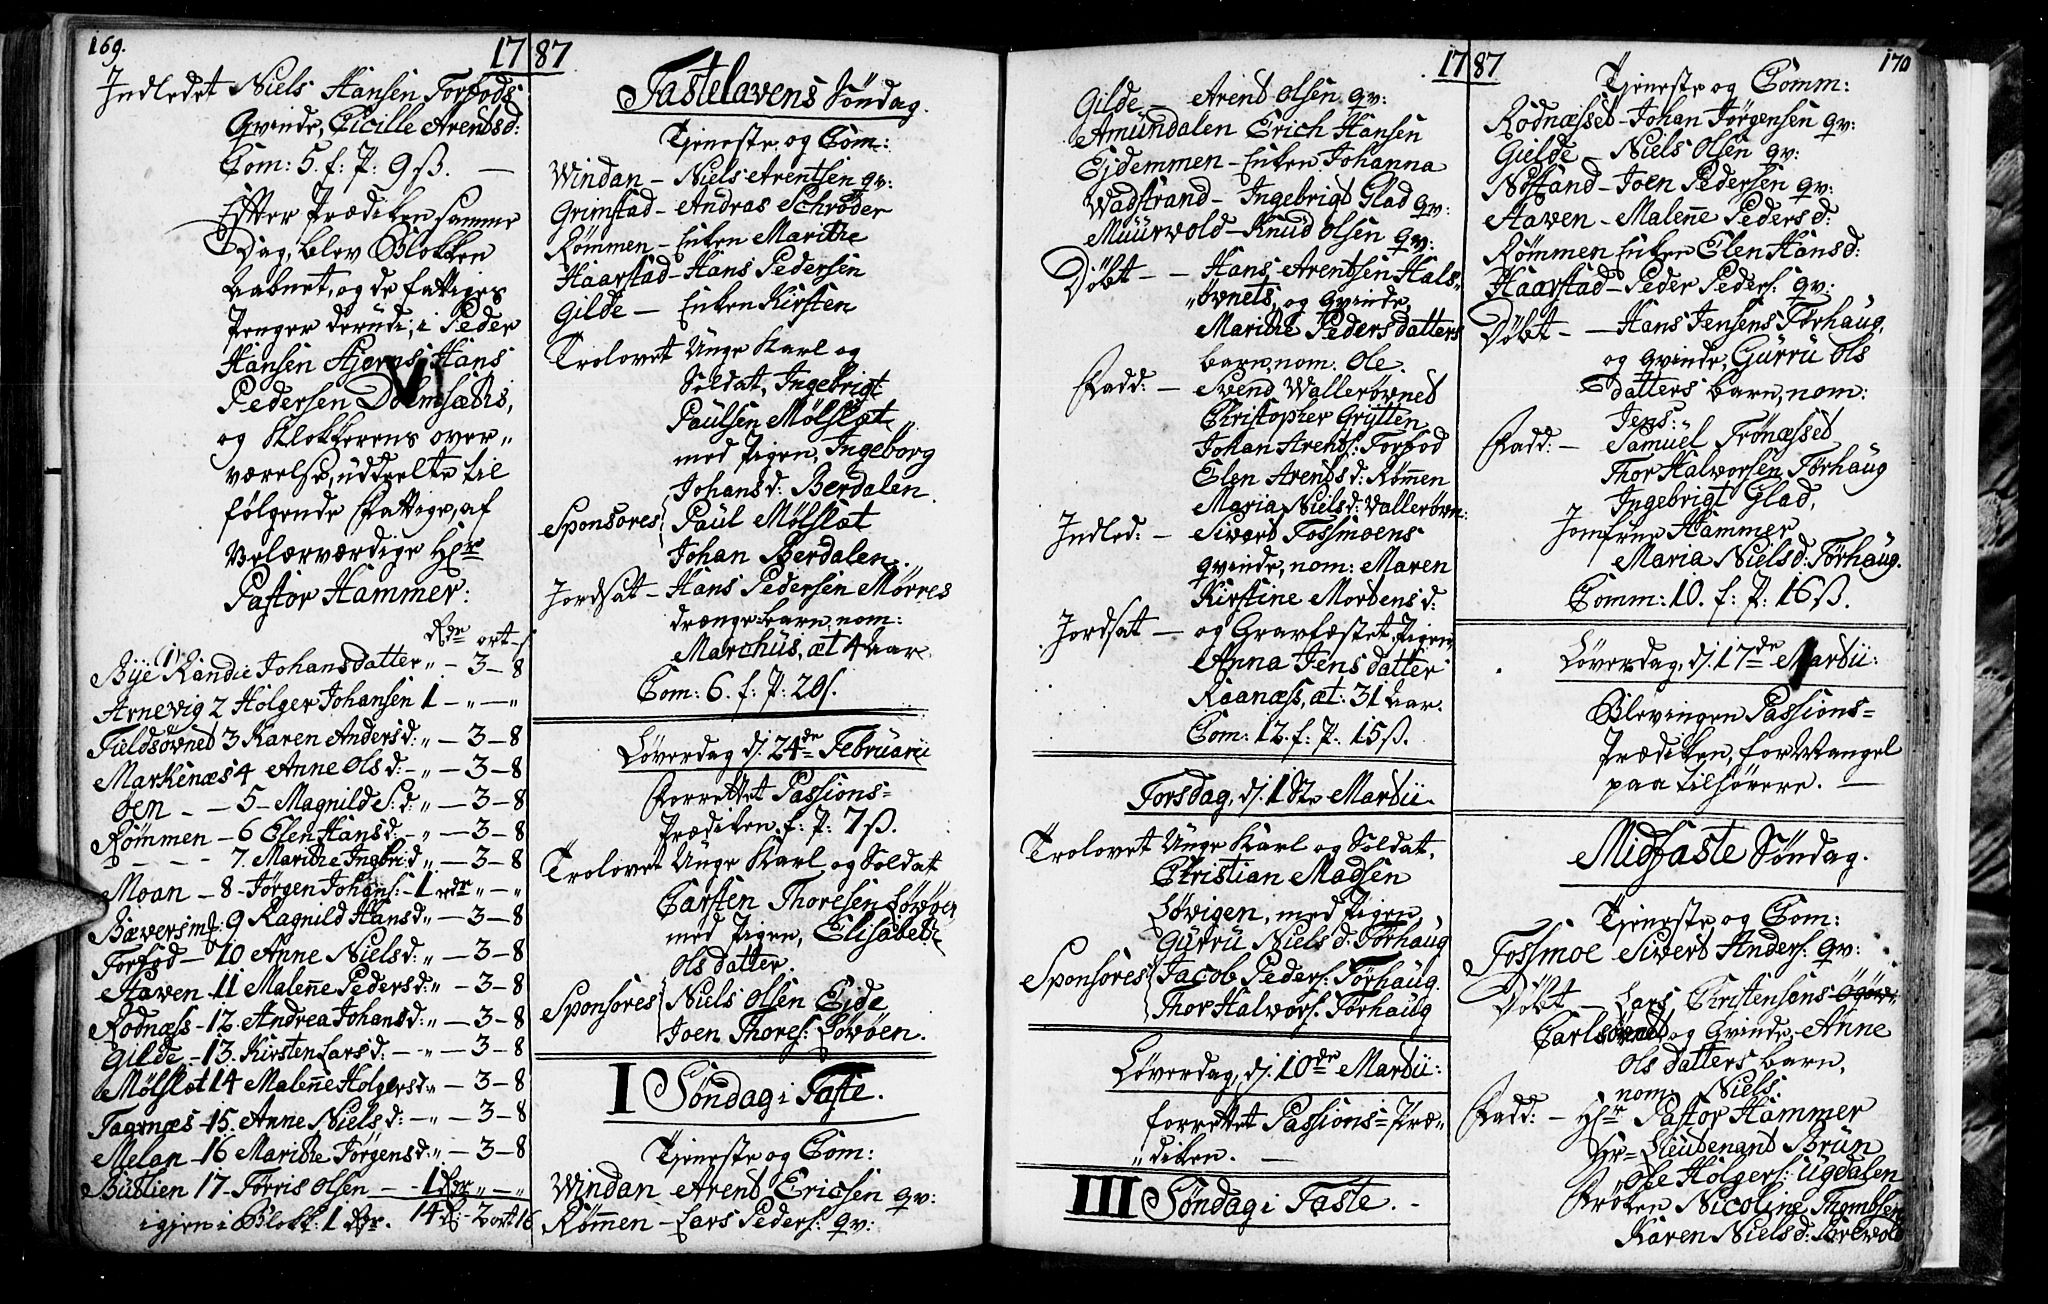 169.
17 87
Indledet Niels Hansen Torfods
Qvinde, Cicille Arentsd:
Com: 5. f: P: 9 ß. —
Efter Prædiken samme
Dag, blev Blokken
Aabnet, og de fattiges
Penger derudi, i Peder
Hansen Hjorns, Hans
Pedersen Dolmsæths,
og Klokkerens over-
værelse, uddeelte til
følgende Fattige, af
Velærværdige Hr
Pastor Hammer:
Rdr ort ß
Bye (1) Randie Johansdatter " – 3 – 8
Arnevig 2 Holger Johansen 1 – " – "
Fieldsøvnet 3 Karen Andersd: " – 3 – 8
Markenæs 4 Anne Olsd: – " – 3 – 8
Øen – 5 – Magnild S:d: " – 3 – 8
Rømmen – 6 Elen Hansd: – " – 3 – 8
– – – 7. Marithe Ingbrid " – 3 – 8
Moan – 8 – Jørgen Johans: – 1 rdr " – "
Bæversmf: 9 Ragnild Hansd: " – 3 – 8
Torfod – 10 Anne Nielsd: " – 3 – 8
Aaven – 11 Malene Pedersd: " – 3 – 8
Rodnæss – 12. Andrea Johansd: " – 3 – 8
Gilde – 13. Kirsten Larsd: – " – 3 – 8
Mølslæt 14 Malene Holgersd: " – 3 – 8
Tagnæs – 15. Anne Nielsd: – " – 3 – 8
Melan – 16 Marithe Jørgensd: " – 3 – 8
Buslien 17 – Torris Olsen – – 1 Rdr " – "
igjen i Blokk: 1 Rdr. 14 R – 2 ort 16
Fastelavens Søndag.
Tjeneste og Com:
Windan – Niels Arentsen qv:
Grimstad – Andras Schrøder
Rømmen – Enken Marithe
Haarstad – Hans Pedersen
Gilde – Enken Kirsten
Trolovet Unge Karl og
Soldat, Ingebrigt
Paulsen Mølslæt
med Pigen, Ingeborg
Johansd: Berdalen.
Sponsores Paul Mølslæt
Johan Berdalen.
Jordsat – Hans Pedersen Mørres
drænge barn, nom:
Marchus, æt 4 Aar.
Com: 6. f: P: 20 ß.
Løverdag dj. 24de Februarii
Forrettet Passions=
Prædiken. f: P: 7 ß.
Trolovet Unge Karl og Soldat
Carsten Thoresen Løvøen
med Pigen, Elisabeth
Olsdatter.
Sponsores Niels Olsen Eide
Joen Thores: Løvøen.
I Søndag i Faste.
Tjeneste og Com:
Windan Arent Ericsen qv:
Rømen – Lars Peders: qv:
17 87
170
Gilde – Arent Olsen qv:
Amundalen Erich Hansen
Ejdemmen – Enken Johanna
Wadstrand – Ingebrigt Glad qv:
Muurvold – Knud Olsen qv:
Døbt – – Hans Arentsen Hals-
"øvnets, og qvinde
Marithe Pedersdatters
barn, nom: Ole.
Fadd: – Svend Wallerøvnet
Christopher Grytten
Johan Arents: Torfod
Elen Arentsd: Rømen
Maria Nielsd: Vallerøvn:
Indled: – Sivert Fossmoens
qvinde, nom: Maren
Kirstine Mortensd:
Jordsat – og Gravfæstet Pigen
Anna Jensdatter
Raanæss, æt: 31 Aar.
Com: 12. f: P: 15 ß.
Torsdag, dj. 1ste Martii.
Trolovet Unge Karl og Soldat,
Christian Madsen
Løvigen, med Pigen
Gurru Nielsd: Tørhaug
Sponsores Jacob Peders: Tørhaug.
Thor Halvors: Tørhaug
Løverdag, dj. 10de Martii:
forrettet Passions= Præ-
"diken. —
III Søndag i Faste. –
Tjeneste og Comm:
Rodnæsset – Johan Jørgensen qv:
Gielde – Niels Olsen qv:
Nøstand – Joen Pedersen qv:
Aaven – Malene Pedersd:
Rømmen Enken Elen Hansd:
Haarstad – Peder Peders: qv:
Døbt – – Hans Jensens Tørhaug,
og qvinde, Gurru Ols
datters barn, nom:
Jens:
Fadd: – Samuel Trønæsset
Thor Halvorsen Tørhaug
Ingebrigt Glad,
Jomfrue Hammer
Maria Nielsd: Tørhaug.
Comm: 10. f: P: 16 ß.
Løverdag, dj. 17de Martii:
Blev ingen Passions=
Prædiken, for Mangel
paa tilhørere. —
Midfaste Søndag.
Tjeneste og Com:
Fossmoe Sivert Anders: qv:
Døbt – Lars Christensøns
Carlsøvnet og Qvinde, Anne
Olsdatters barn,
nom: Niels.
Fadd: – Hr Pastor Hammer
Hr= Lieutenant Brun
Ole Holgers: Ugdalen
Frøken Nicoline Thombsen
Karen Nielsd: